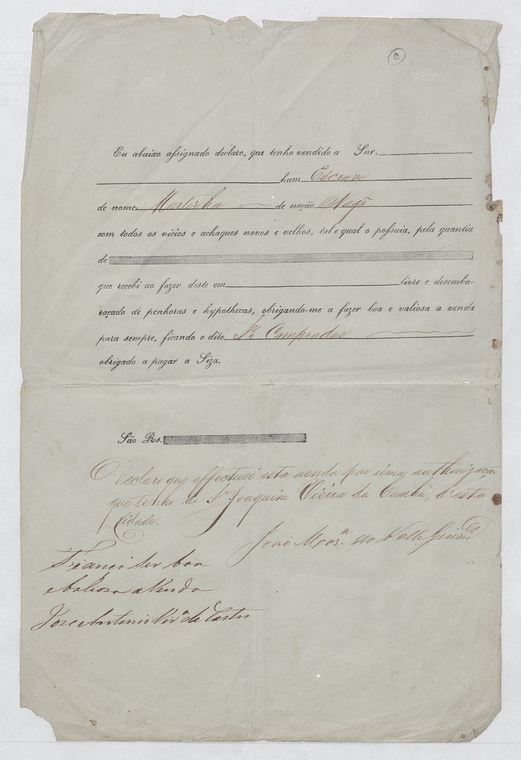 C
Eu abaixo assignado declaro, que tenho vendido a Snr.
hum Escravo
de nome de nação Nagô
com todos os vicios e achaques novos e velhos, tal e qual o possuia, pela quantia
de
que recebi ao fazer deste em livre e desemba-
raçado de penhoras e hypothecas, obrigando-me a fazer boa e valiosa a venda
para sempre, ficando o dito Sr. Comprador
obrigado a pagar a Siza.
São Rs.
Declaro que effectuei esta venda por uma authorização
que tenho do Sr. Joaquim Vieira da Cunha, d'esta
Cidade.
João do Valle
Fiança e ser boa
valiosa a venda
José Antonio de Castro